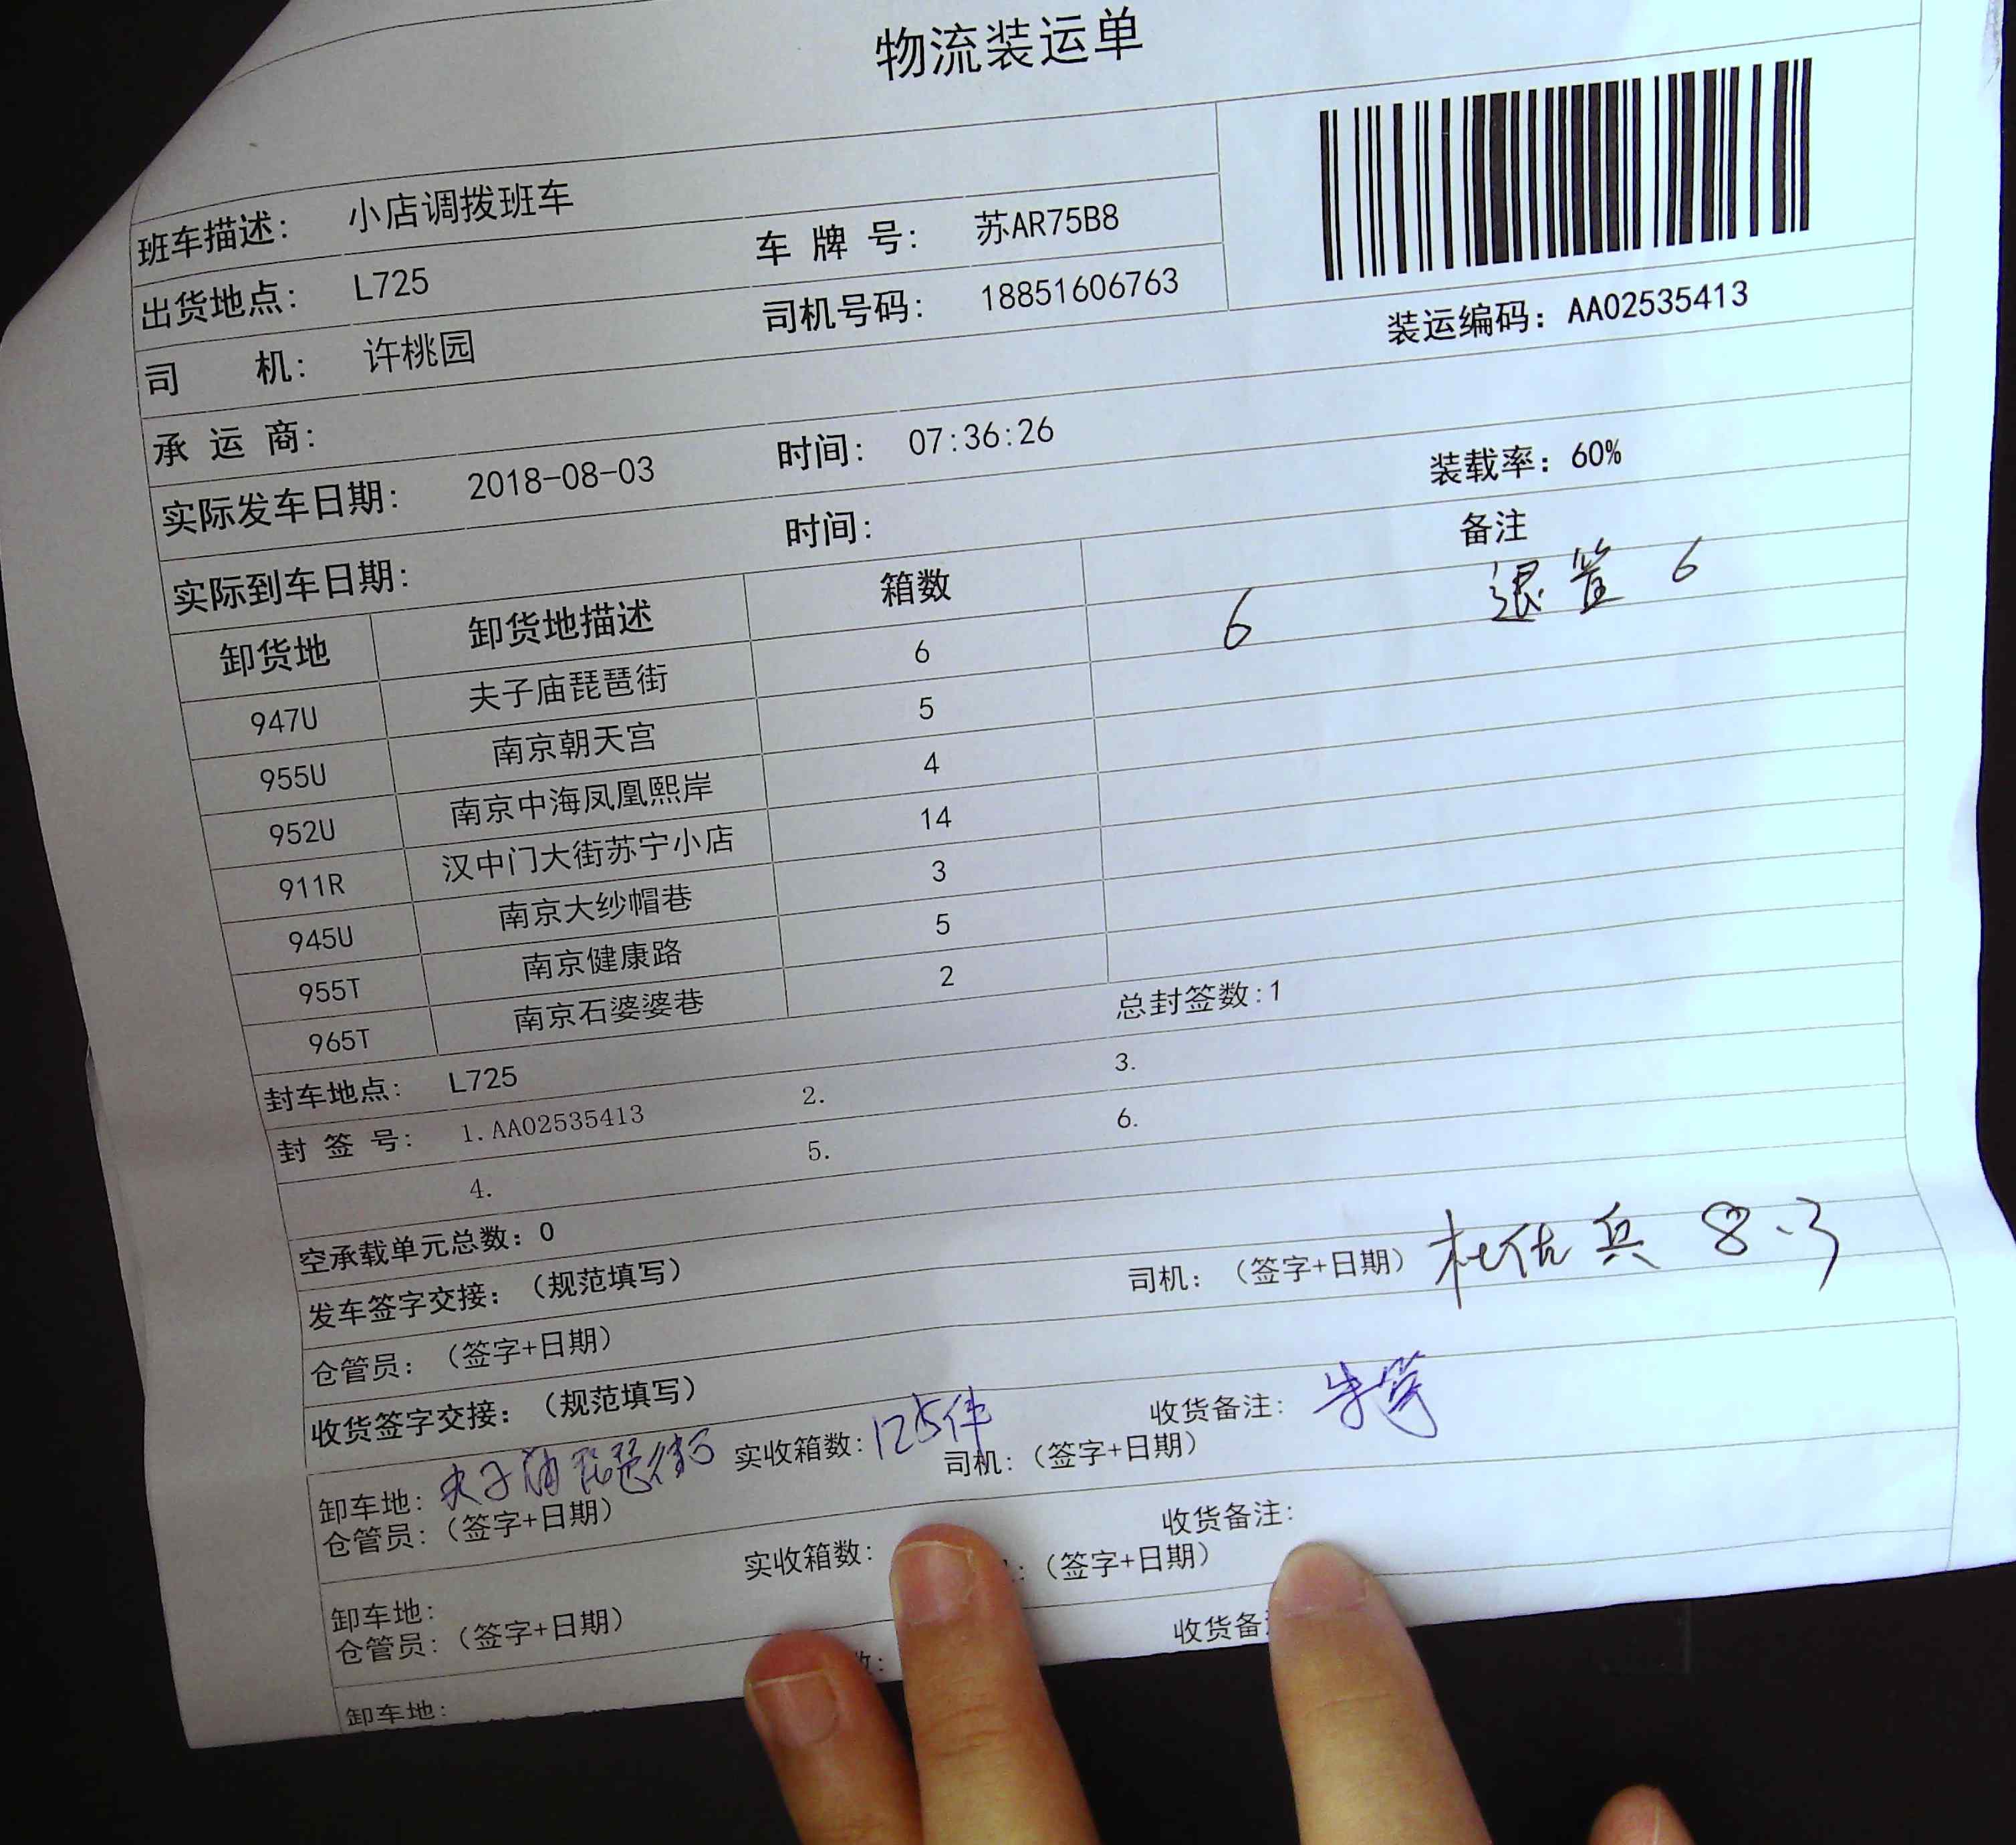 物流装运单
班车描述: 小店调拨班车
出货地点: L725 车 牌 号: 苏AR75B8
司 机: 许桃园 司机号码: 18851606763
装运编码: AA02535413
承 运 商:
实际发车日期: 2018-08-03 时间: 07:36:26
实际到车日期: 时间: 装载率: 60%
卸货地 卸货地描述 箱数 备注
947U 夫子庙琵琶街 6 6 退筐 6
955U 南京朝天宫 5
952U 南京中海凤凰熙岸 4
911R 汉中门大街苏宁小店 14
945U 南京大纱帽巷 3
955T 南京健康路 5
965T 南京石婆婆巷 2
封车地点: L725 总封签数:1
封 签 号: 1.AA02535413 2. 3.
4. 5. 6.
空承载单元总数: 0
发车签字交接: (规范填写)
仓管员: (签字+日期) 司机: (签字+日期) 8.3
收货签字交接: (规范填写)
卸车地: 夫子庙琵琶街 实收箱数: 125件 收货备注:
仓管员: (签字+日期) 司机: (签字+日期)
卸车地: 实收箱数: 收货备注:
仓管员: (签字+日期) : (签字+日期)
卸车地: 数: 收货备